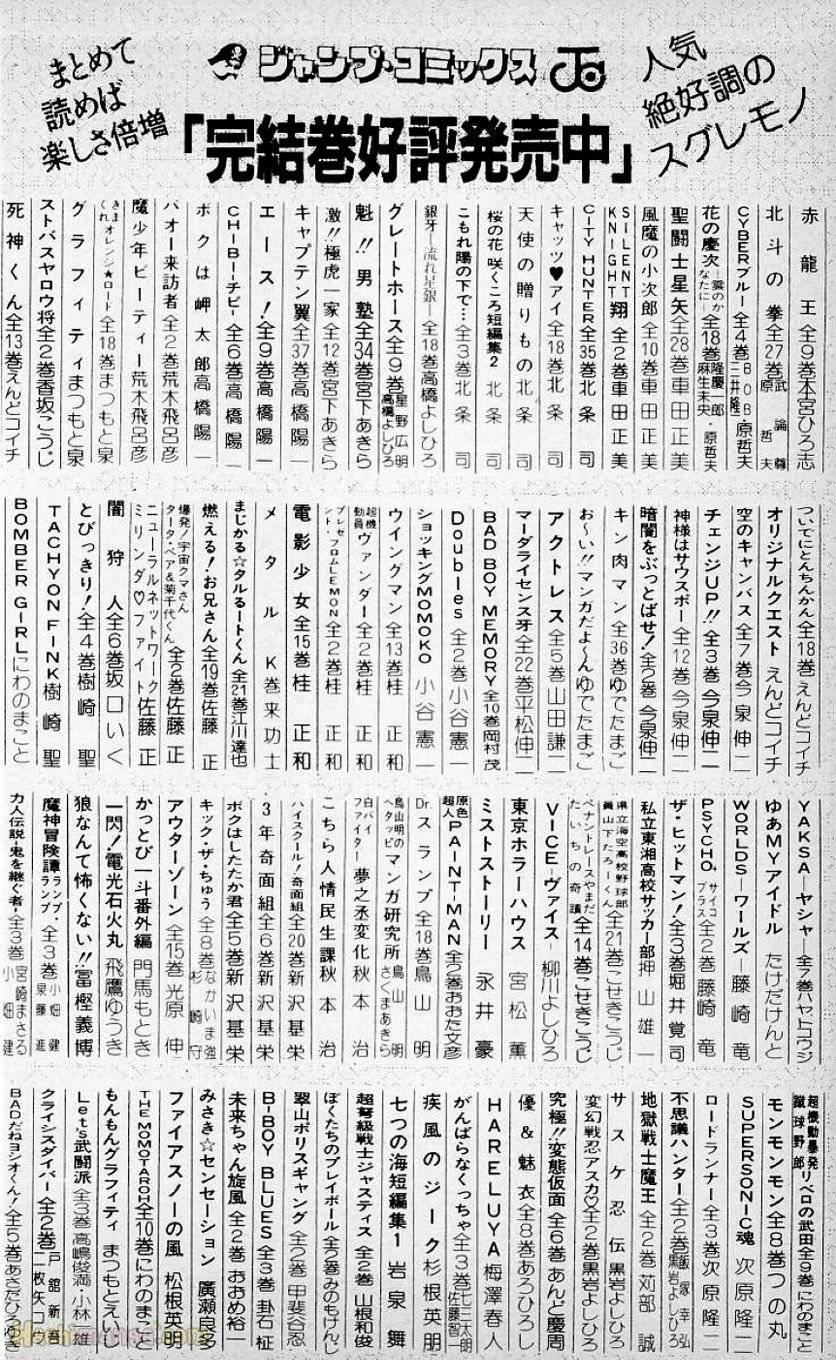 まとめて
読めば
楽しさ倍増
ジャンプ・コミックス
人気
絶好調の
スグレモノ
「完結巻好評発売中」
赤龍王 全9巻 本宮ひろ志
北斗の拳 全27巻 武論尊 原哲夫
CYBERブルー 全4巻 BOB 三井隆一 原哲夫
花の慶次―雲のかなたに― 全18巻 隆慶一郎 麻生未央・原哲夫
聖闘士星矢 全28巻 車田正美
風魔の小次郎 全10巻 車田正美
SILENT KNIGHT翔 全2巻 車田正美
CITY HUNTER 全35巻 北条司
キャッツ♥アイ 全18巻 北条司
天使の贈りもの 北条司
桜の花 咲くころ 短編集2 北条司
こもれ陽の下で… 全3巻 北条司
銀牙―流れ星 銀― 全18巻 高橋よしひろ
グレートホース 全9巻 星野広明 高橋よしひろ
魁!!男塾 全34巻 宮下あきら
激!!極虎一家 全12巻 宮下あきら
キャプテン翼 全37巻 高橋陽一
エース! 全9巻 高橋陽一
CHIBI―チビ― 全6巻 高橋陽一
ボクは岬太郎 高橋陽一
バオー来訪者 全2巻 荒木飛呂彦
魔少年ビーティー 荒木飛呂彦
きまぐれオレンジ★ロード 全18巻 まつもと泉
グラフィティ まつもと泉
ストバスヤロウ将 全2巻 香坂こうじ
死神くん 全13巻 えんどコイチ
ついでにとんちんかん 全18巻 えんどコイチ
オリジナルクエスト えんどコイチ
空のキャンバス 全7巻 今泉伸二
チェンジUP!! 全3巻 今泉伸二
神様はサウスポー 全12巻 今泉伸二
暗闇をぶっとばせ! 全2巻 今泉伸二
キン肉マン 全36巻 ゆでたまご
お〜い!!マンガだよ〜ん ゆでたまご
アクトレス 全5巻 山田謙二
マーダライセンス牙 全22巻 平松伸二
BAD BOY MEMORY 全10巻 岡村茂
Doubles 全2巻 小谷憲一
ショッキングMOMOKO 小谷憲一
ウイングマン 全13巻 桂正和
超機動員ヴァンダー 全2巻 桂正和
プレゼント・フロムLEMON 全2巻 桂正和
電影少女 全15巻 桂正和
メタルK 巻来功士
まじかる☆タルるートくん 全21巻 江川達也
燃える!お兄さん 全19巻 佐藤正
爆発!宇宙クマさん タータ・ベア&菊千代くん 全2巻 佐藤正
ニューラルネットワーク ミリンダ♡ファイト 佐藤正
闇狩人 全6巻 坂口いく
とびっきり! 全4巻 樹崎聖
TACHYON FINK 樹崎聖
BOMBER GIRL にわのまこと
YAKSA―ヤシャ― 全7巻 ハヤトコウジ
ゆあMYアイドル たけだけんと
WORLDS ワールズ 藤崎竜
PSYCHO+ サイコプラス 全2巻 藤崎竜
ザ・ヒットマン! 全3巻 堀井覚司
私立東湘高校サッカー部 押山雄一
県立海空高校野球部員山下たろーくん 全21巻 こせきこうじ
ペナントレースやまだたいちの奇蹟 全14巻 こせきこうじ
VICE―ヴァイス― 柳川よしひろ
東京ホラーハウス 宮松薫
ミストストーリー 永井豪
原色超人PAINT-MAN 全2巻 おおた文彦
Dr.スランプ 全18巻 鳥山明
鳥山明のヘタッピマンガ研究所 鳥山明 さくまあきら
白バイファイター 夢之丞変化 秋本治
こちら人情民生課 秋本治
ハイスクール!奇面組 全20巻 新沢基栄
3年奇面組 全6巻 新沢基栄
ボクはしたたか君 全5巻 新沢基栄
キック・ザ・ちゅう 全8巻 なかいま強 杉崎守
アウターゾーン 全15巻 光原伸
かっとび一斗番外編 門馬もとき
一閃!電光石火丸 飛鷹ゆうき
狼なんて怖くない!! 冨樫義博
魔神冒険譚ランプ・ランプ 全3巻 小畑健 泉藤進
力人伝説―鬼を継ぐ者― 全3巻 宮崎まさる 小畑健
超機動暴発蹴球野郎リベロの武田 全9巻 にわのまこと
モンモンモン 全8巻 つの丸
SUPERSONIC魂 次原隆二
ロードランナー 全3巻 次原隆二
不思議ハンター 全2巻 飯塚幸弘 黒岩よしひろ
地獄戦士魔王 全2巻 苅部誠
サスケ忍伝 黒岩よしひろ
変幻戦忍アスカ♡ 全2巻 黒岩よしひろ
究極!!変態仮面 全6巻 あんど慶周
優&魅衣 全8巻 あろひろし
HARELUYA 梅澤春人
がんばらなくっちゃ 全3巻 七三太朗 佐藤智一
疾風のジーク 杉根英朋
七つの海 短編集1 岩泉舞
超弩級戦士ジャスティス 全2巻 山根和俊
ぼくたちのプレイボール 全2巻 みのもけんじ
翠山ポリスギャング 全2巻 甲斐谷忍
B-BOY BLUES 全3巻 卦石柾
未来ちゃん旋風 全2巻 おおめ裕一
みさき☆センセーション 廣瀬良多
ファイアスノーの風 松根英明
THE MOMOTAROH 全10巻 にわのまこと
もんもんグラフィティ まつもとえいじ
Let's武闘派 全3巻 高嶋俊満・小林雄
クライシスダイバー 全2巻 戸舘新吾 二枚矢コウ
BADだねヨシオくん! 全5巻 あさだひろゆき